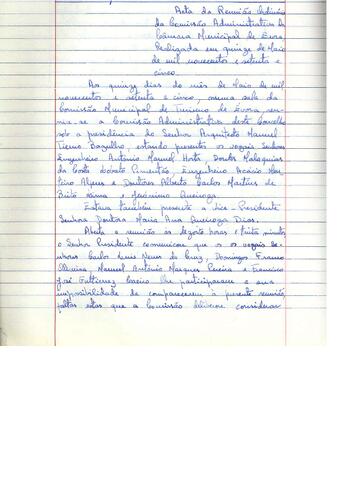 Acta da Reunião Ordinária
da Comissão Administrativa da
Câmara Municipal de Évora,
Realizada em quinze de Maio
de mil novecentos e setenta e
cinco.
Aos quinze dias do mês de Maio de mil
novecentos e setenta e cinco, numa sala da
Comissão Municipal de Turismo de Évora reu-
niu-se a Comissão Administrativa deste Concelho
sob a presidência do Senhor Arquitecto Manuel
Bagulho, estando presentes os vogais Senhores
Engenheiro António Manuel Horta, Doutor Malaquias
da Costa Pimentão, Engenheiro Acácio Mon-
teiro e Doutores Alberto Carlos Martins de
Brito e Jerónimo
Estava também presente a Vice-Presidente
Senhora Doutora Maria Ana Dias.
Aberta a reunião às dezoito horas e trinta minutos
o Senhor Presidente comunicou que os vogais Se-
nhores Carlos Luís Neves da Cruz, Domingos Franco
Oliveira, Manuel António Marques Pereira e Francisco
José Gutierrez lhe participaram a sua
impossibilidade de comparecerem à presente reunião,
faltas estas que a Comissão deliberou considerar